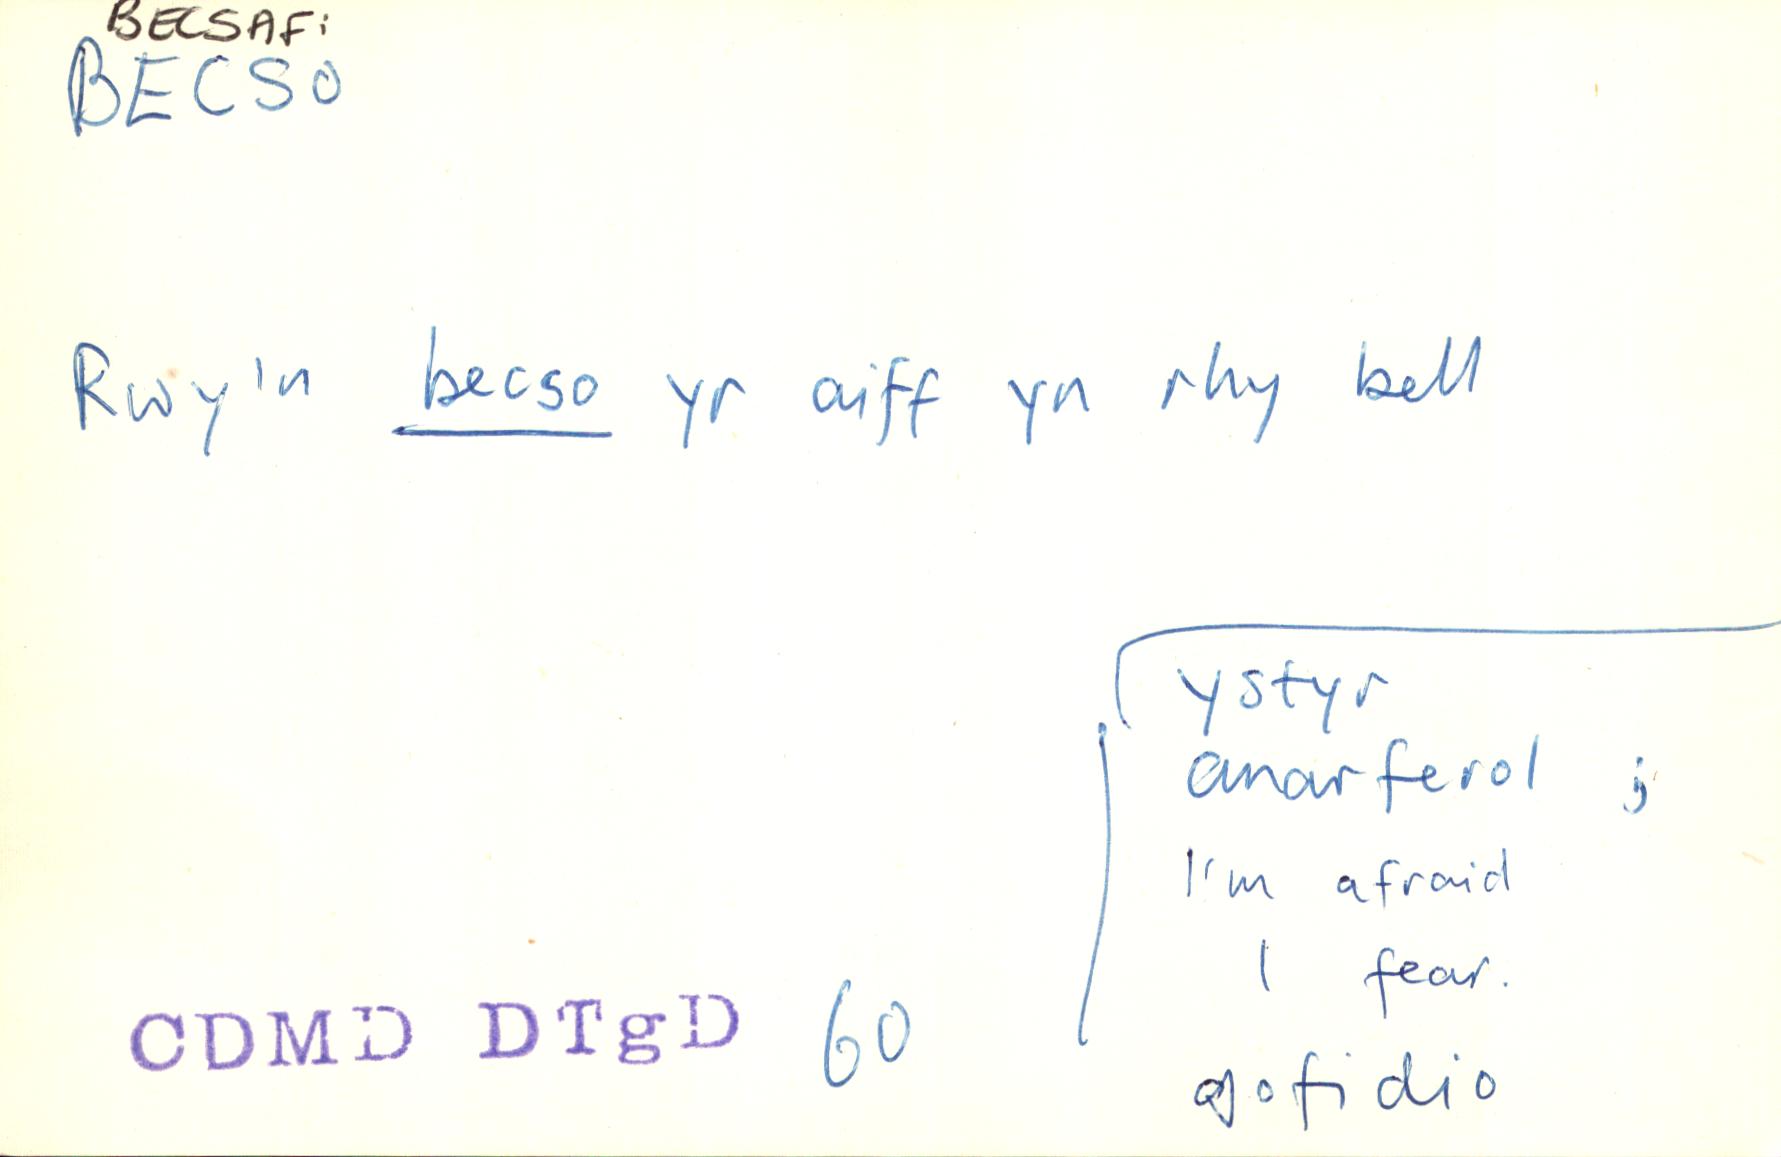 BECSAF:
BECSO
Rwy'n becso yr aiff yn rhy bell
ystyr
anarferol ;
I'm afraid
I fear.
gofidio
CDMD DTgD 60